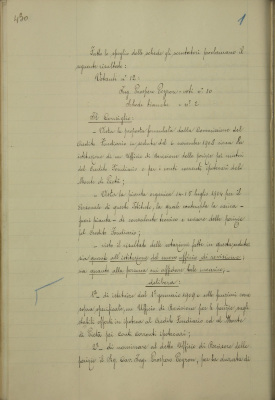 430
1
Fatto lo spoglio delle schede gli scrutatori proclamano il
seguente risultato:
Votanti n° 12:
Ing. Prospero Peyron - voti n° 10
Schede bianche - n° 2.
Il Consiglio:
- Vista la proposta formulata dalla Commissione del
Credito Fondiario in seduta del 2 novembre 1908 circa la
istituzione di un Ufficio di Revisione delle perizie pei mutui
del Credito Fondiario e per i conti correnti ipotecari del
Monte di Pietà;
- Vista la pianta organica 10-15 luglio 1904 per il
Personale di questo Istituto, la quale
di del numero delle perizie
pel Credito Fondiario;
- visto il risultato delle votazioni fatte in quest'seduta
sia quanto all'istituzione del nuovo ufficio di revisione,
sia quanto alla persona cui affidare tale mansione,
delibera:
1° - di istituire dal 1° gennaio 1909 e colle funzioni come
sopra specificate, un Ufficio di Revisione per le perizie negli
stabili offerti in ipoteca al Credito Fondiario ed al Monte
di Pietà pei conti correnti ipotecari;
2° - di nominare al detto Ufficio di Revisione delle
perizie il Sig. Cav. Ing. Prospero Peyron, per la durata di